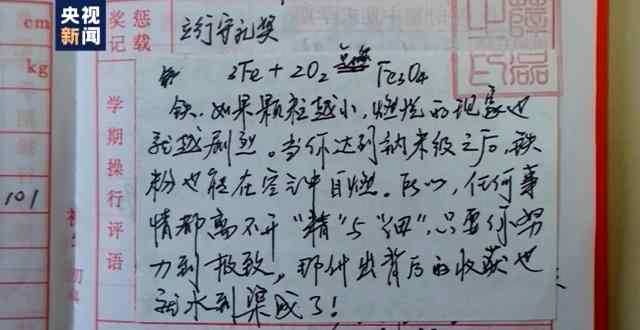 央视
新闻
cm
kg
101
奖惩
记载
立行守礼奖
学期操行评语
3Fe + 2O₂ 点燃 Fe₃O₄
铁,如果颗粒越小,燃烧的现象也
就越剧烈。当你达到纳米级之后,铁
粉也能在空气中自燃。所以,任何事
情都离不开“精”与“细”,只要你努
力到极致,那付出背后的收获也
就水到渠成了!